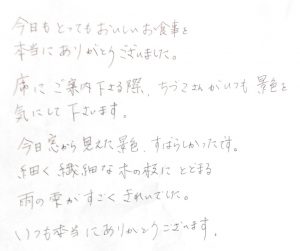 今日もとってもおいしいお食事を
本当にありがとうございました。
席にご案内下さる際、ちづこさんがいつも景色を
気にして下さいます。
今日窓から見えた景色、すばらしかったです。
細く繊細な木の枝にとどまる
雨の雫がすごくきれいでした。
いつも本当にありがとうございます。